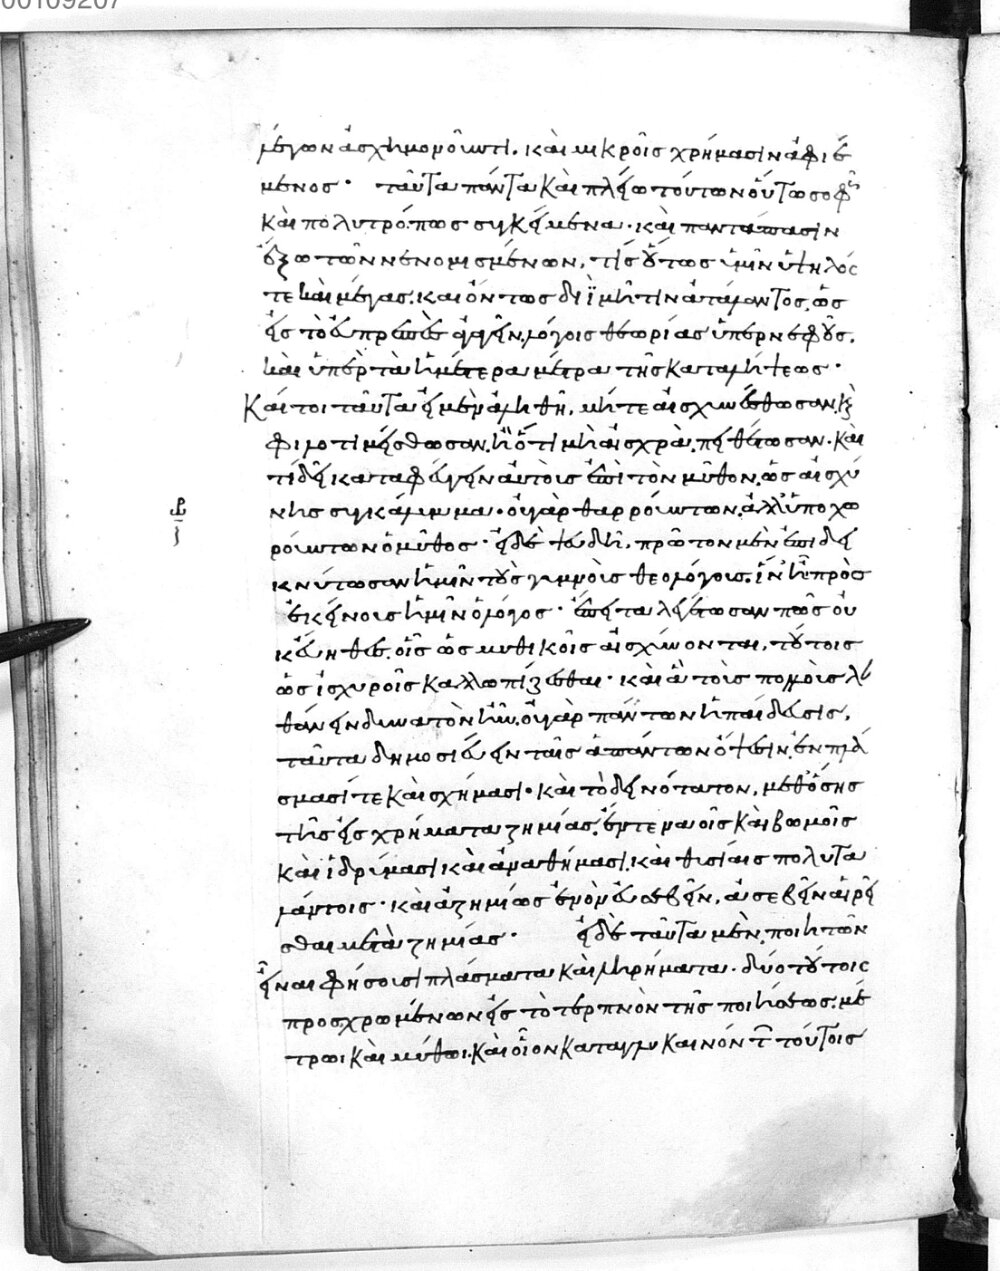 00109207
μέγων ἀσχημονοῦντι. καὶ μικροῖς χρήμασιν ἀφιέ
μενος· ταῦτα πάντα καὶ πλείω τούτων οὕτω σοφῶς
καὶ πολυτρόπως συγκείμενα· καὶ παντάπασιν
ἔξω τῶν νενομισμένων, τίς οὕτως ὑμῖν ὑψηλός
τε καὶ μέγας, καὶ ὄντως διῒ μῆτιν ἀτάλαντος, ὡς
εἰς τὸ εὐπρεπὲς ἀγαγεῖν, λόγοις θεωρίας ὑπερνεφοῦς,
καὶ ὑπὲρ τὰ ἡμέτερα μέτρα τῆς καταλήψεως·
Καίτοι ταῦτα εἰ μὲν ἀληθῆ, μήτε αἰσχυνέσθωσαν,
φιλοτιμείσθωσαν, ἢ ὅτι μὴ αἰσχρὰ, πειθέτωσαν· καὶ
τί δεῖ καταφεύγειν αὐτοῖς ἐπὶ τὸν μῦθον, ὡς αἰσχύ
νης συγκάλυμμα· οὐ γὰρ θαρρούντων, ἀλλ' ὑποχω
ρούντων ὁ μῦθος· εἰ δὲ ψευδῆ, πρῶτον μὲν ἐπιδει
κνύτωσαν ἡμῖν τοὺς γυμνοὺς θεολόγους, ἵν' ᾖ πρὸς
ἐκείνους ἡμῖν ὁ λόγος· ἔπειτα λεγέτωσαν πῶς οὐ
κ εὔηθες, οἷς ὡς μυθικοῖς αἰσχύνονται, τούτοις
ὡς ἰσχυροῖς καλλωπίζεσθαι· καὶ ἃ τοῖς πολλοῖς λα
θεῖν ἐνδυνατὸν ἦν, οὐ γὰρ πάντων ἡ παίδευσις,
ταῦτα δημοσιεύειν ταῖς ἁπάντων ὄψεσιν, ἐν πλά
σμασί τε καὶ σχήμασι· καὶ τὸ δεινότατον, μεθ' ὅσης
τῆς εἰς χρήματα ζημίας, ἔν τε ναοῖς καὶ βωμοῖς
καὶ ἱδρύμασι καὶ ἀναθήμασι, καὶ θυσίαις πολυτα
λάντοις· καὶ ἀζημίως ἐνὸν εὐσεβεῖν, ἀσεβεῖν αἱρεῖ
σθαι μετὰ ζημίας· εἰ δὲ ταῦτα μὲν, ποιητῶν
εἶναι φήσουσι πλάσματα καὶ ληρήματα· δύο τούτοις
προσχρωμένων εἰς τὸ τερπνὸν τῆς ποιήσεως, μέ
τρωι καὶ μύθωι, καὶ οἷον καταγλυκαινόντων τούτοις